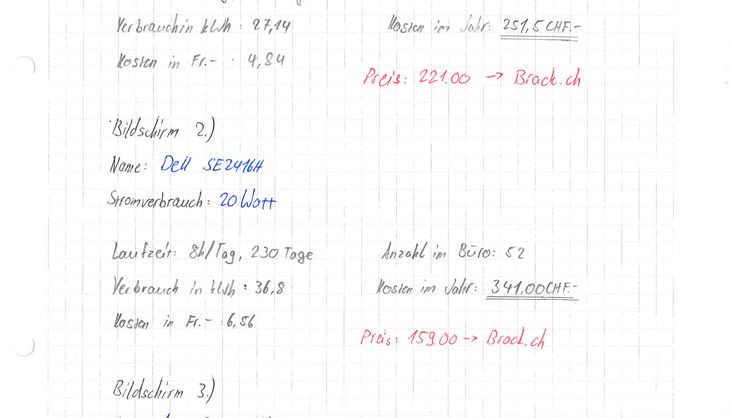 Verbrauch in kWh : 27,14
Kosten im Jahr: 251,5 CHF.-
Kosten in Fr.- : 4,84
Preis: 221.00 → Brack.ch
Bildschirm 2.)
Name: Dell SE2416H
Stromverbrauch: 20 Watt
Laufzeit: 8h/Tag, 230 Tage
Anzahl im Büro: 52
Verbrauch in kWh : 36,8
Kosten im Jahr: 341,00 CHF.-
Kosten in Fr.- : 6,56
Preis: 159.00 → Brack.ch
Bildschirm 3.)